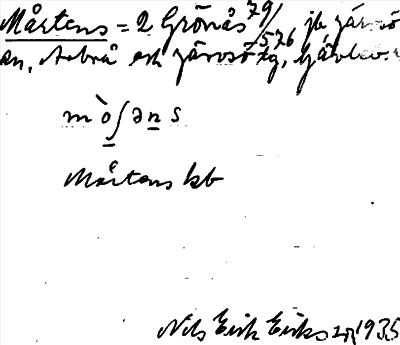 Mårtens = 2 Grönås 79/576 jb Järvsö
sn, Arbrå och Järvsö tg, Gävleb. l
m ò ʃ ə n s
Mårtens kb
Nils Erik Eriksson 1935